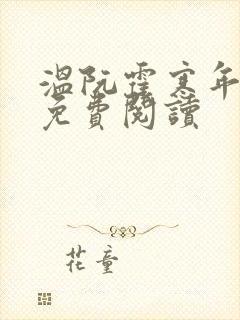 溫阮霍寒年
免費閱讀
花童